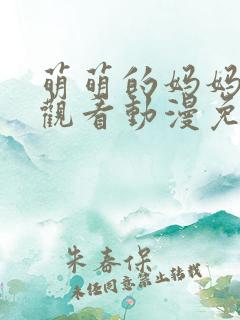 萌萌的妈妈
觀看動漫免
朱春保
未经同意禁止转载